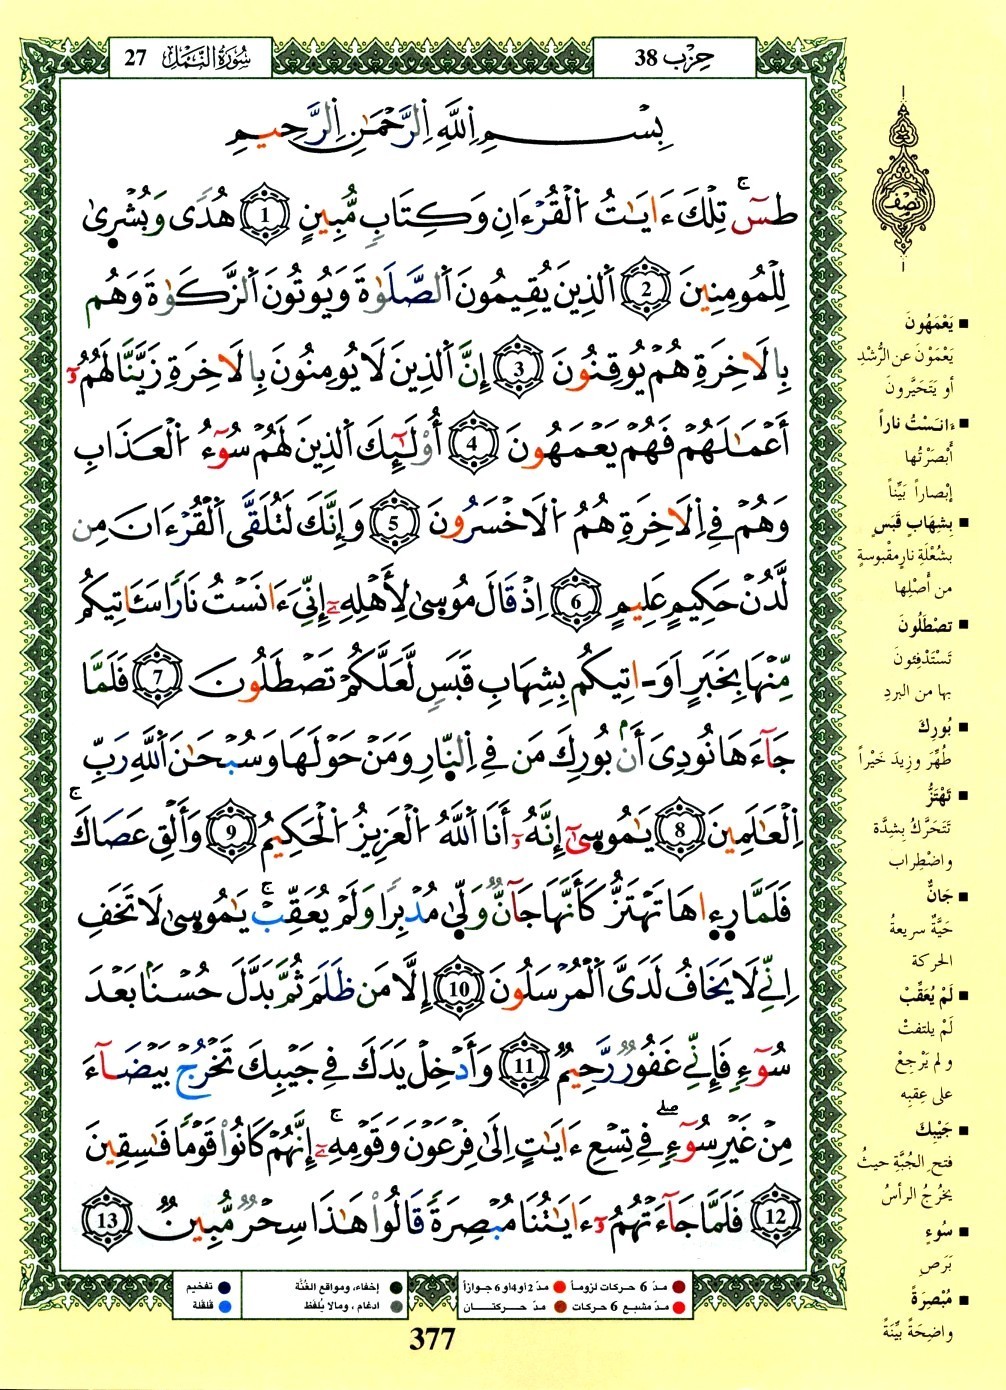 حِزْب 38
سُورَةُ النَّمْل 27
بِسْمِ اِللَّهِ اِلرَّحْمَٰنِ اِلرَّحِيمِ
طسٓۚ تِلْكَ ءَايَٰتُ اُلْقُرْءَانِ وَكِتَابٖ مُّبِينٍ 1 هُدٗى وَبُشْر۪ىٰ
لِلْمُومِنِينَ 2 اَلذِينَ يُقِيمُونَ اَلصَّلَوٰةَ وَيُوتُونَ اَلزَّكَوٰةَ وَهُم
بِالَاخِرَةِ هُمْ يُوقِنُونَ 3 إِنَّ اَلذِينَ لَا يُومِنُونَ بِالَاخِرَةِ زَيَّنَّا لَهُمُۥٓ
أَعْمَٰلَهُمْ فَهُمْ يَعْمَهُونَ 4 أُوْلَٰٓئِكَ اَلذِينَ لَهُمْ سُوٓءُ اُلْعَذَابِ
وَهُمْ فِے اِلَاخِرَةِ هُمُ اُلَاخْسَرُونَ 5 وَإِنَّكَ لَتُلَقَّى اَلْقُرْءَانَ مِن
لَّدُنْ حَكِيمٍ عَلِيمٍ 6 اِذْ قَالَ مُوس۪ىٰ لِأَهْلِهِۦٓ إِنِّيَ ءَانَسْتُ نَارٗا سَـَٔاتِيكُم
مِّنْهَا بِخَبَرٍ اَوَ ـ اتِيكُم بِشِهَابِ قَبَسٖ لَّعَلَّكُمْ تَصْطَلُونَ 7 فَلَمَّا
جَآءَهَا نُودِيَ أَنۢ بُورِكَ مَن فِے اِلنّ۪ارِ وَمَنْ حَوْلَهَا وَسُبْحَٰنَ اَللَّهِ رَبِّ
اِلْعَٰلَمِينَ 8 يَٰمُوس۪ىٰٓ إِنَّهُۥٓ أَنَا اَللَّهُ اُلْعَزِيزُ اُلْحَكِيمُ 9 وَأَلْقِ عَصَاكَۚ
فَلَمَّا ر۪ء۪اهَا تَهْتَزُّ كَأَنَّهَا جَآنّٞ وَلّ۪ىٰ مُدْبِرٗا وَلَمْ يُعَقِّبْۚ يَٰمُوس۪ىٰ لَا تَخَفِ
اِنِّے لَا يَخَافُ لَدَيَّ اَلْمُرْسَلُونَ 10 إِلَّا مَن ظَلَمَ ثُمَّ بَدَّلَ حُسْنَاۢ بَعْدَ
سُوٓءٖ فَإِنِّے غَفُورٞ رَّحِيمٞ 11 وَأَدْخِلْ يَدَكَ فِے جَيْبِكَ تَخْرُجْ بَيْضَآءَ
مِنْ غَيْرِ سُوٓءٖۖ فِے تِسْعِ ءَايَٰتٍ اِلَىٰ فِرْعَوْنَ وَقَوْمِهِۦٓۚ إِنَّهُمْ كَانُواْ قَوْمٗا فَٰسِقِينَ
12 فَلَمَّا جَآءَتْهُمُۥٓ ءَايَٰتُنَا مُبْصِرَةٗ قَالُواْ هَٰذَا سِحْرٞ مُّبِينٞ 13
نِصْف
■ يَعْمَهُونَ
يَعْمَوْنَ عن الرُّشْدِ
أو يَتَحَيَّرونَ
■ ءانَسْتُ ناراً
أَبْصَرْتُها
إبْصاراً بَيِّناً
■ بِشِهَابِ قَبَسٍ
بشُعْلَةِ نارٍ مقْبوسةٍ
من أصْلِها
■ تصْطَلُونَ
تَسْتَدْفِئونَ
بها من البردِ
■ بُورِكَ
طُهِّرَ وزِيدَ خَيْراً
■ تَهْتَزُّ
تَتَحَرَّكُ بِشِدَّة
واضْطِراب
■ جَانٌّ
حَيَّةٌ سريعةُ
الحركة
■ لَمْ يُعَقِّبْ
لَمْ يلتفتْ
ولم يَرْجعْ
على عِقبِه
■ جَيْبِكَ
فتحِ الجُبَّةِ حيثُ
يخرُجُ الرأسُ
■ سُوءٍ
بَرَصٍ
■ مُبْصِرَةً
واضِحَةً بيِّنَةً
مدّ 6 حركات لزوماً مدّ 2 أو 4 أو 6 جوازاً إخفاء، ومواقع الغُنَّة تفخيم
مدّ مشبع 6 حركات مدّ حركتان ادغام، ومالا يُلفَظ قلقلة
377